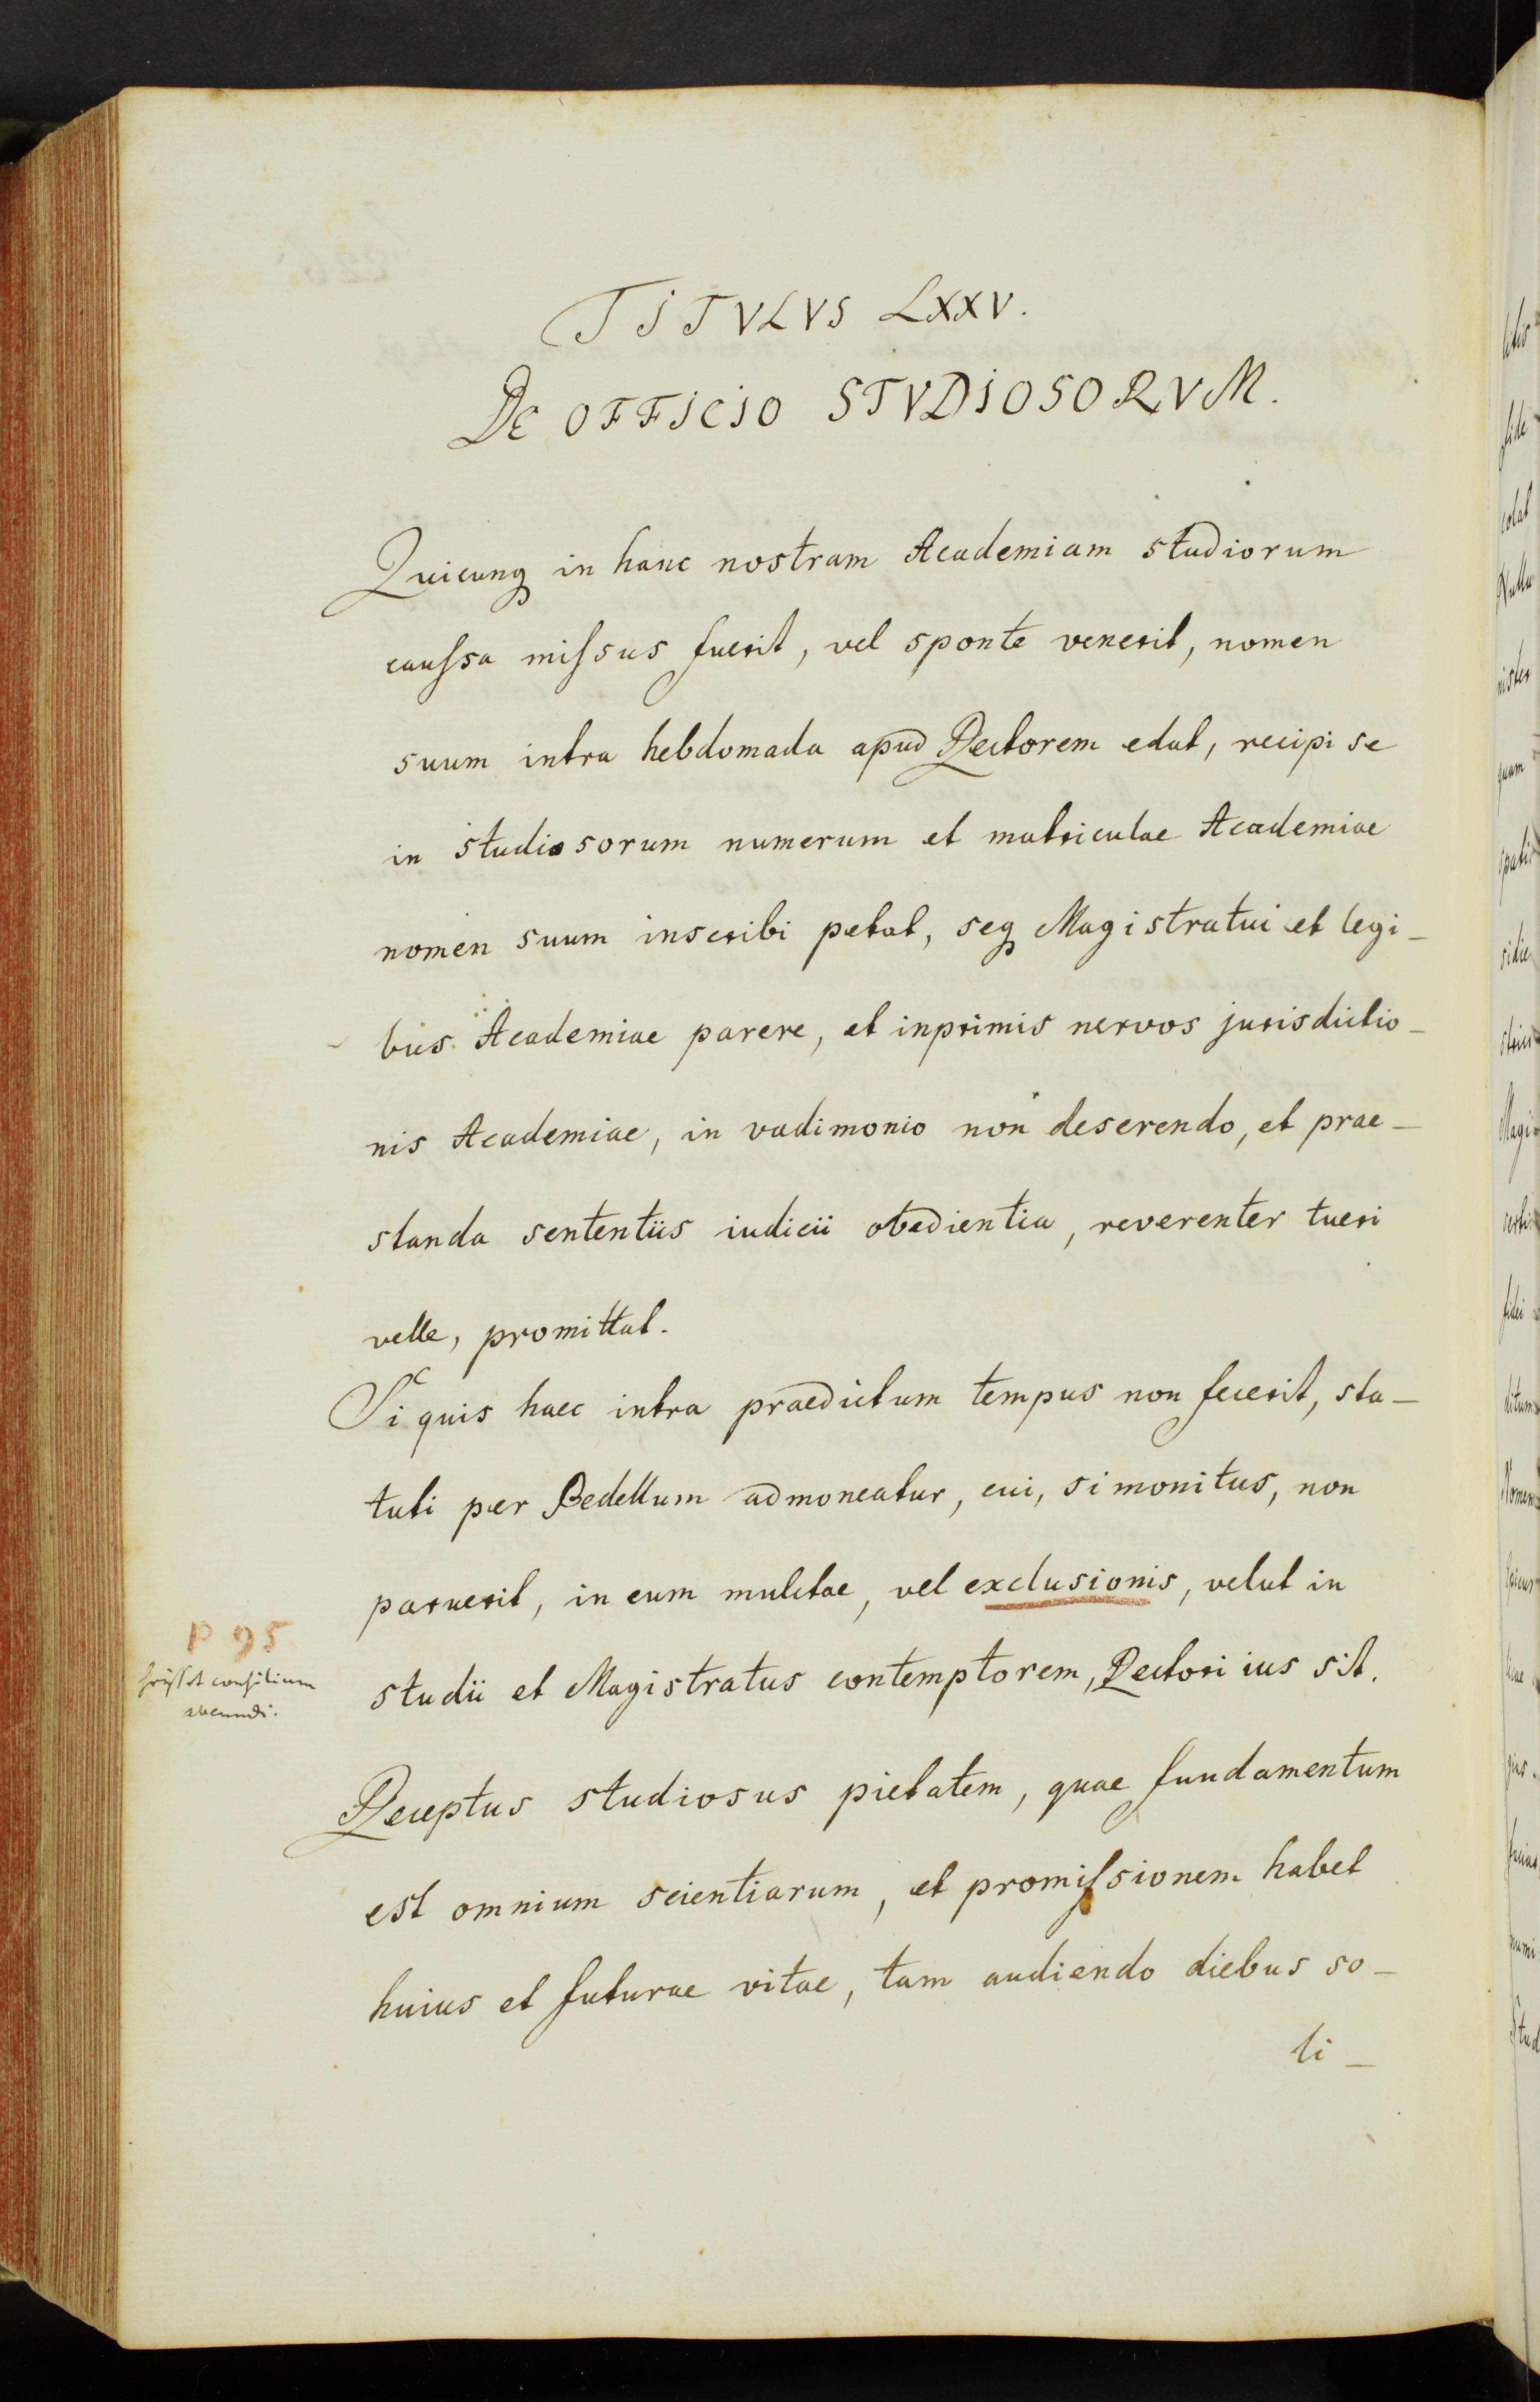 TITVLVS LXXV.
DE OFFICIO STVDIOSORVM.
Quicunq in hanc nostram Academiam studiorum
cauſsa miſsus fuerit, vel sponte venerit, nomen
suum intra hebdomada apud Rectorem edat, recipi se
in studiosorum numerum et matriculae Academiae
nomen suum inscribi petat, seq Magistratui et legi-
bus Academiae parere, et inprimis nervos jurisdictio-
nis Academiae, in vadimonio non deserendo, et prae-
standa sententiis iudicii obedientia, reverenter tueri
velle, promittat.
Si quis haec intra praedictum tempus non fecerit, sta-
tuti per Bedellum admoneatur, cui, si monitus, non
paruerit, in eum mulctae, vel exclusionis, velut in
studii et Magistratus contemptorem, Rectori ius sit.
P 95
consilium
abeundi.
Receptus studiosus pietatem, quae fundamentum
est omnium scientiarum, et promiſsionem habet
huius et futurae vitae, tam audiendo diebus so-
li-